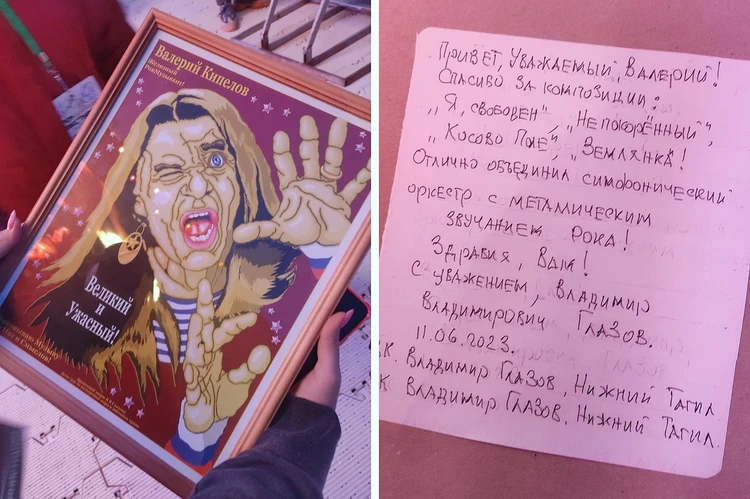 Валерий Кипелов
Великий
и
Ужасный!
Привет, уважаемый Валерий!
Спасибо за композиции:
„Я, свободен", „Непокорённый",
„Косово Поле", „Землянка!
Отлично объединил симфонический
оркестр с металическим
звучанием рока!
Здравия, Вам!
С уважением, Владимир
Владимирович Глазов.
11.06.2023.
К. Владимир Глазов, Нижний Тагил
К Владимир Глазов, Нижний Тагил.